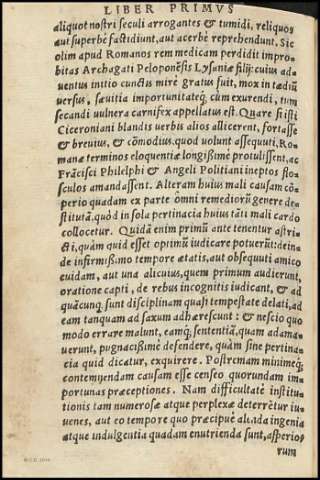 LIBER PRIMVS
aliquot nostri seculi arrogantes & tumidi, reliquos
aut superbè fastidiunt, aut acerbè reprehendunt. Sic
olim apud Romanos rem medicam perdidit impro-
bitas Archagati Peloponẽsis Lysaniæ filij: cuius ad-
uentus initio cunctis mirè gratus fuit, mox in tædiũ
uersus, sæuitia importunitateq́; cùm exurendi, tum
secandi uulnera carnifex appellatus est. Quare si isti
Ciceroniani blandis uerbis alios allicerent, fortasse
& breuius, & cõmodius, quod uolunt assequuti, Ro-
manæ terminos eloquentiæ longissimè protulissent, ac
Frãcisci Philelphi & Angeli Politiani ineptos flo-
sculos amandassent. Alteram huius mali causam cõ-
perio quadam ex parte õmni remediorũ genere de-
stitutã, quòd in sola pertinacia huius tãti mali cardo
collocetur. Quidã enim primũ ante tenentur astri-
cti, quàm quid esset optimũ iudicare potuerũt: dein-
de infirmiss:mo tempore ætatis, aut obsequuti amico
cuidam, aut una alicuius, quem primum audierunt,
oratione capti, de rebus incognitis iudicant, & ad
quãcunq; sunt disciplinam quasi tempestate delati, ad
eam tanquam ad saxum adhærescunt: & nescio quo
modo errare malunt, eamq́; sententiã, quam adama-
uerunt, pugnacissimè defendere, quàm sine pertina-
cia quid dicatur, exquirere. Postremam minimeq́;
contemnendam causam esse censeo quorundam im-
portunas præceptiones. Nam difficultate institu-
tionis tam numerosæ atque perplexæ deterrẽtur iu-
uenes, aut eo tempore quo præcipuè alẽda ingenia
atque indulgentia quadam enutrienda sunt, asperio-
rum